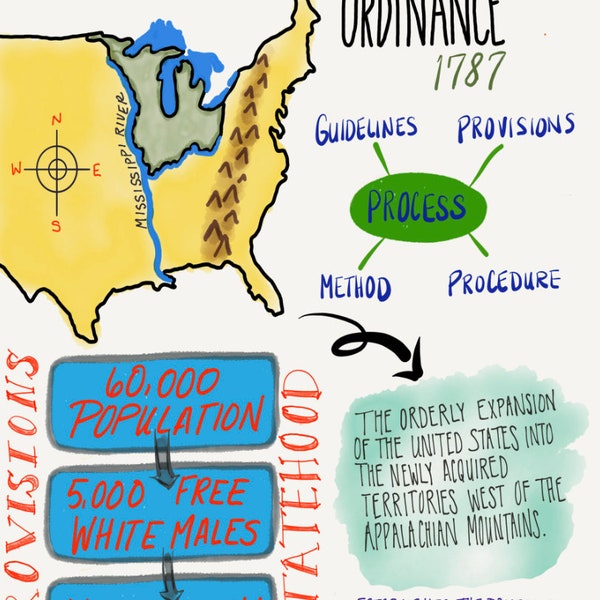 ORDINANCE
1787
GUIDELINES
PROVISIONS
PROCESS
METHOD
PROCEDURE
N
W
E
S
MISSISSIPPI RIVER
60,000
POPULATION
5,000 FREE
WHITE MALES
THE ORDERLY EXPANSION
OF THE UNITED STATES INTO
THE NEWLY ACQUIRED
TERRITORIES WEST OF THE
APPALACHIAN MOUNTAINS.